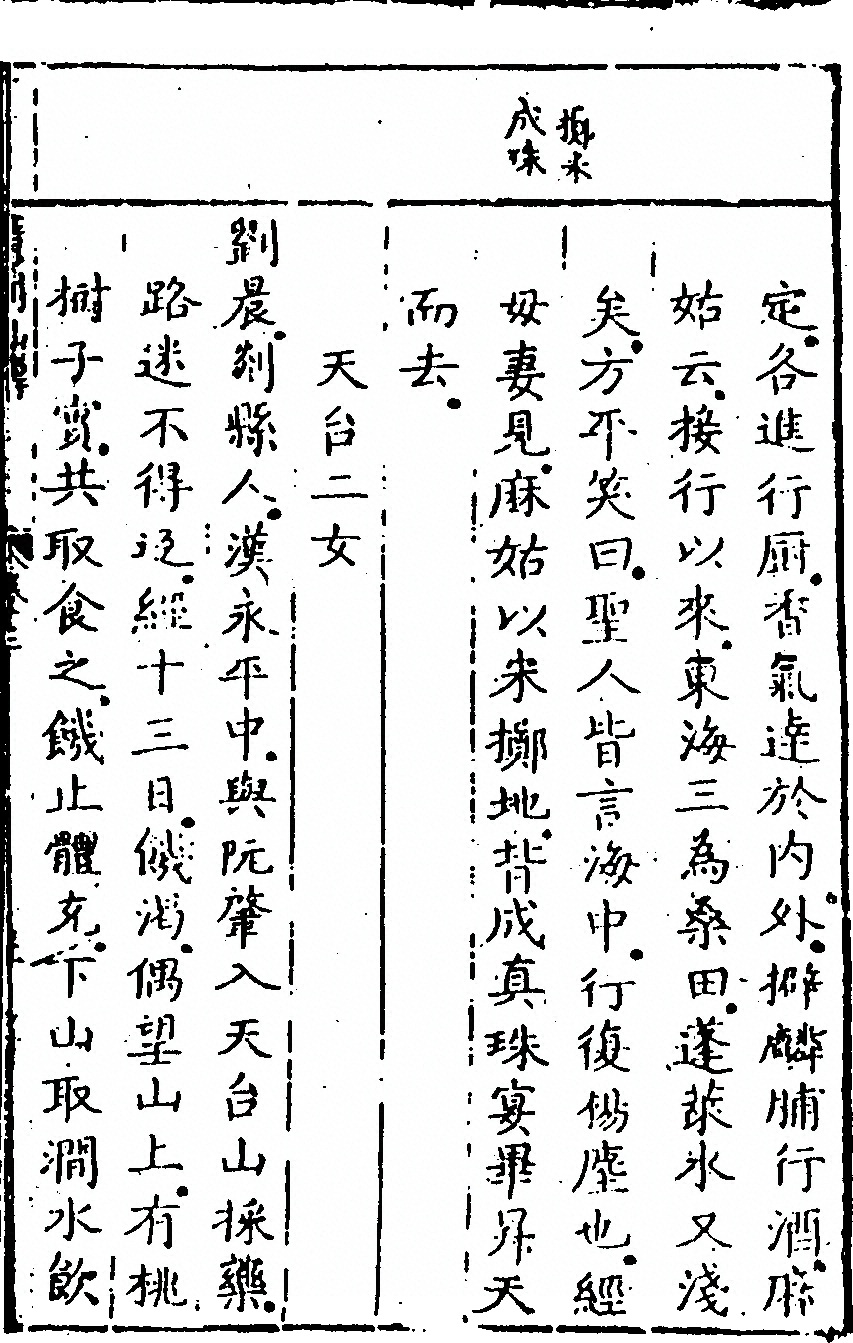 擲米
成珠
定各進行厨香氣達於內外擗麟脯行酒麻
姑云接行以來東海三為桑田蓬萊水又淺
矣方平笑曰聖人皆言海中行復揚塵也經
母妻見麻姑以米擲地皆成真珠宴畢昇天
而去
天台二女
劉晨剡縣人漢永平中與阮肇入天台山採藥
路迷不得返經十三日饑渴偶望山上有桃
樹子實共取食之饑止體充下山取澗水飲